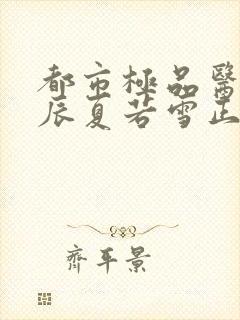 都市極品醫
辰夏若雪正
齊平景